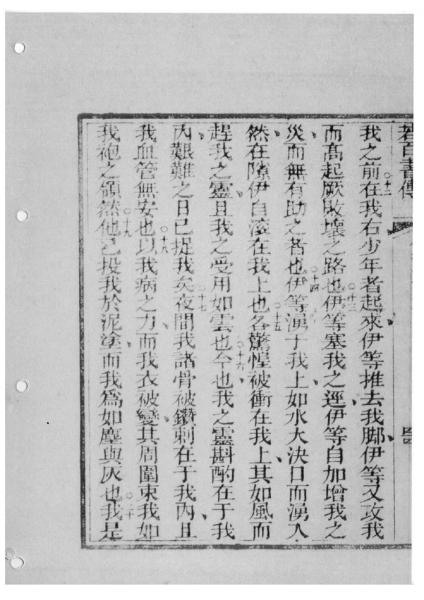 若百書傳
我之前○十二在我右少年者起來伊等推去我脚伊等又攻我
而高起厥敗壞之路也○十三伊等塞我之逕伊等自加增我之
災而無有助之者也○十四伊等湧于我上如水大決口而湧入
然在隙伊自滾在我上也○十五各驚惶被衝在我上其如風而
趕我之靈且我之受用如雲也○十六今也我之靈斟酌在于我
內艱難之日已捉我矣○十七夜間我諸骨被鑽刺在于我內且
我血管無安也○十八以我病之力而我衣被變其周圍束我如
我袍之領然○十九他已投我於泥塗而我爲如塵與灰也○二十我是